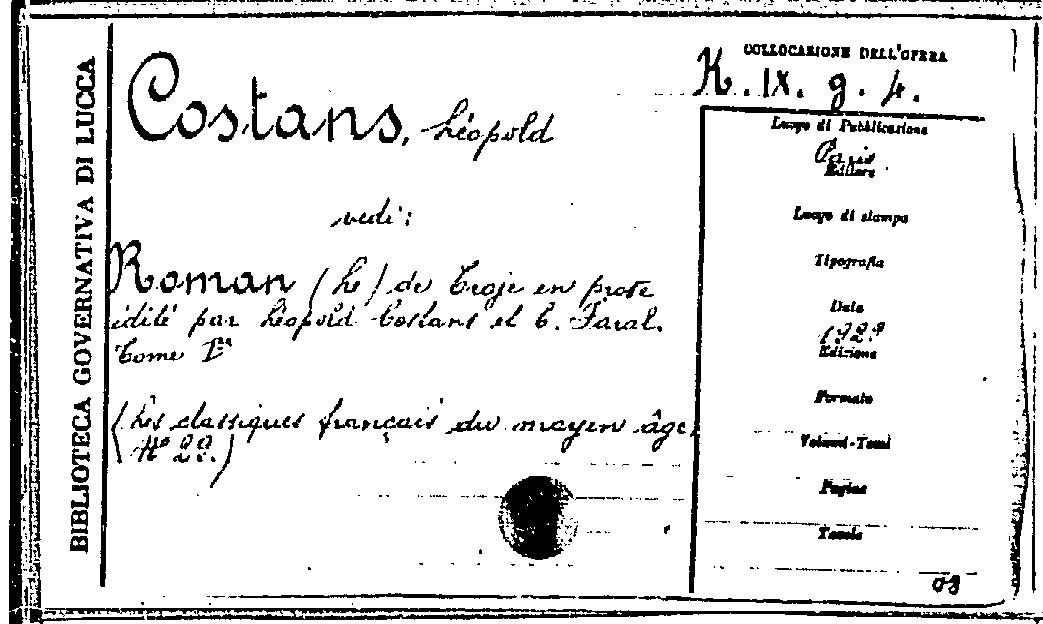 BIBLIOTECA GOVERNATIVA DI LUCCA
Costans, Léopold
vedi:
Roman (Le) de Troje en prose
édité par Léopold Costans et E. Faral.
Tome Ier
(Les classiques français du moyen âge.
No 29.)
COLLOCAZIONE DELL'OPERA
K. IX. g. 4.
Luogo di Pubblicazione
Paris
Editore
Luogo di stampa
Tipografia
Data
Edizione
Formato
Volumi-Tomi
Pagine
Tavole